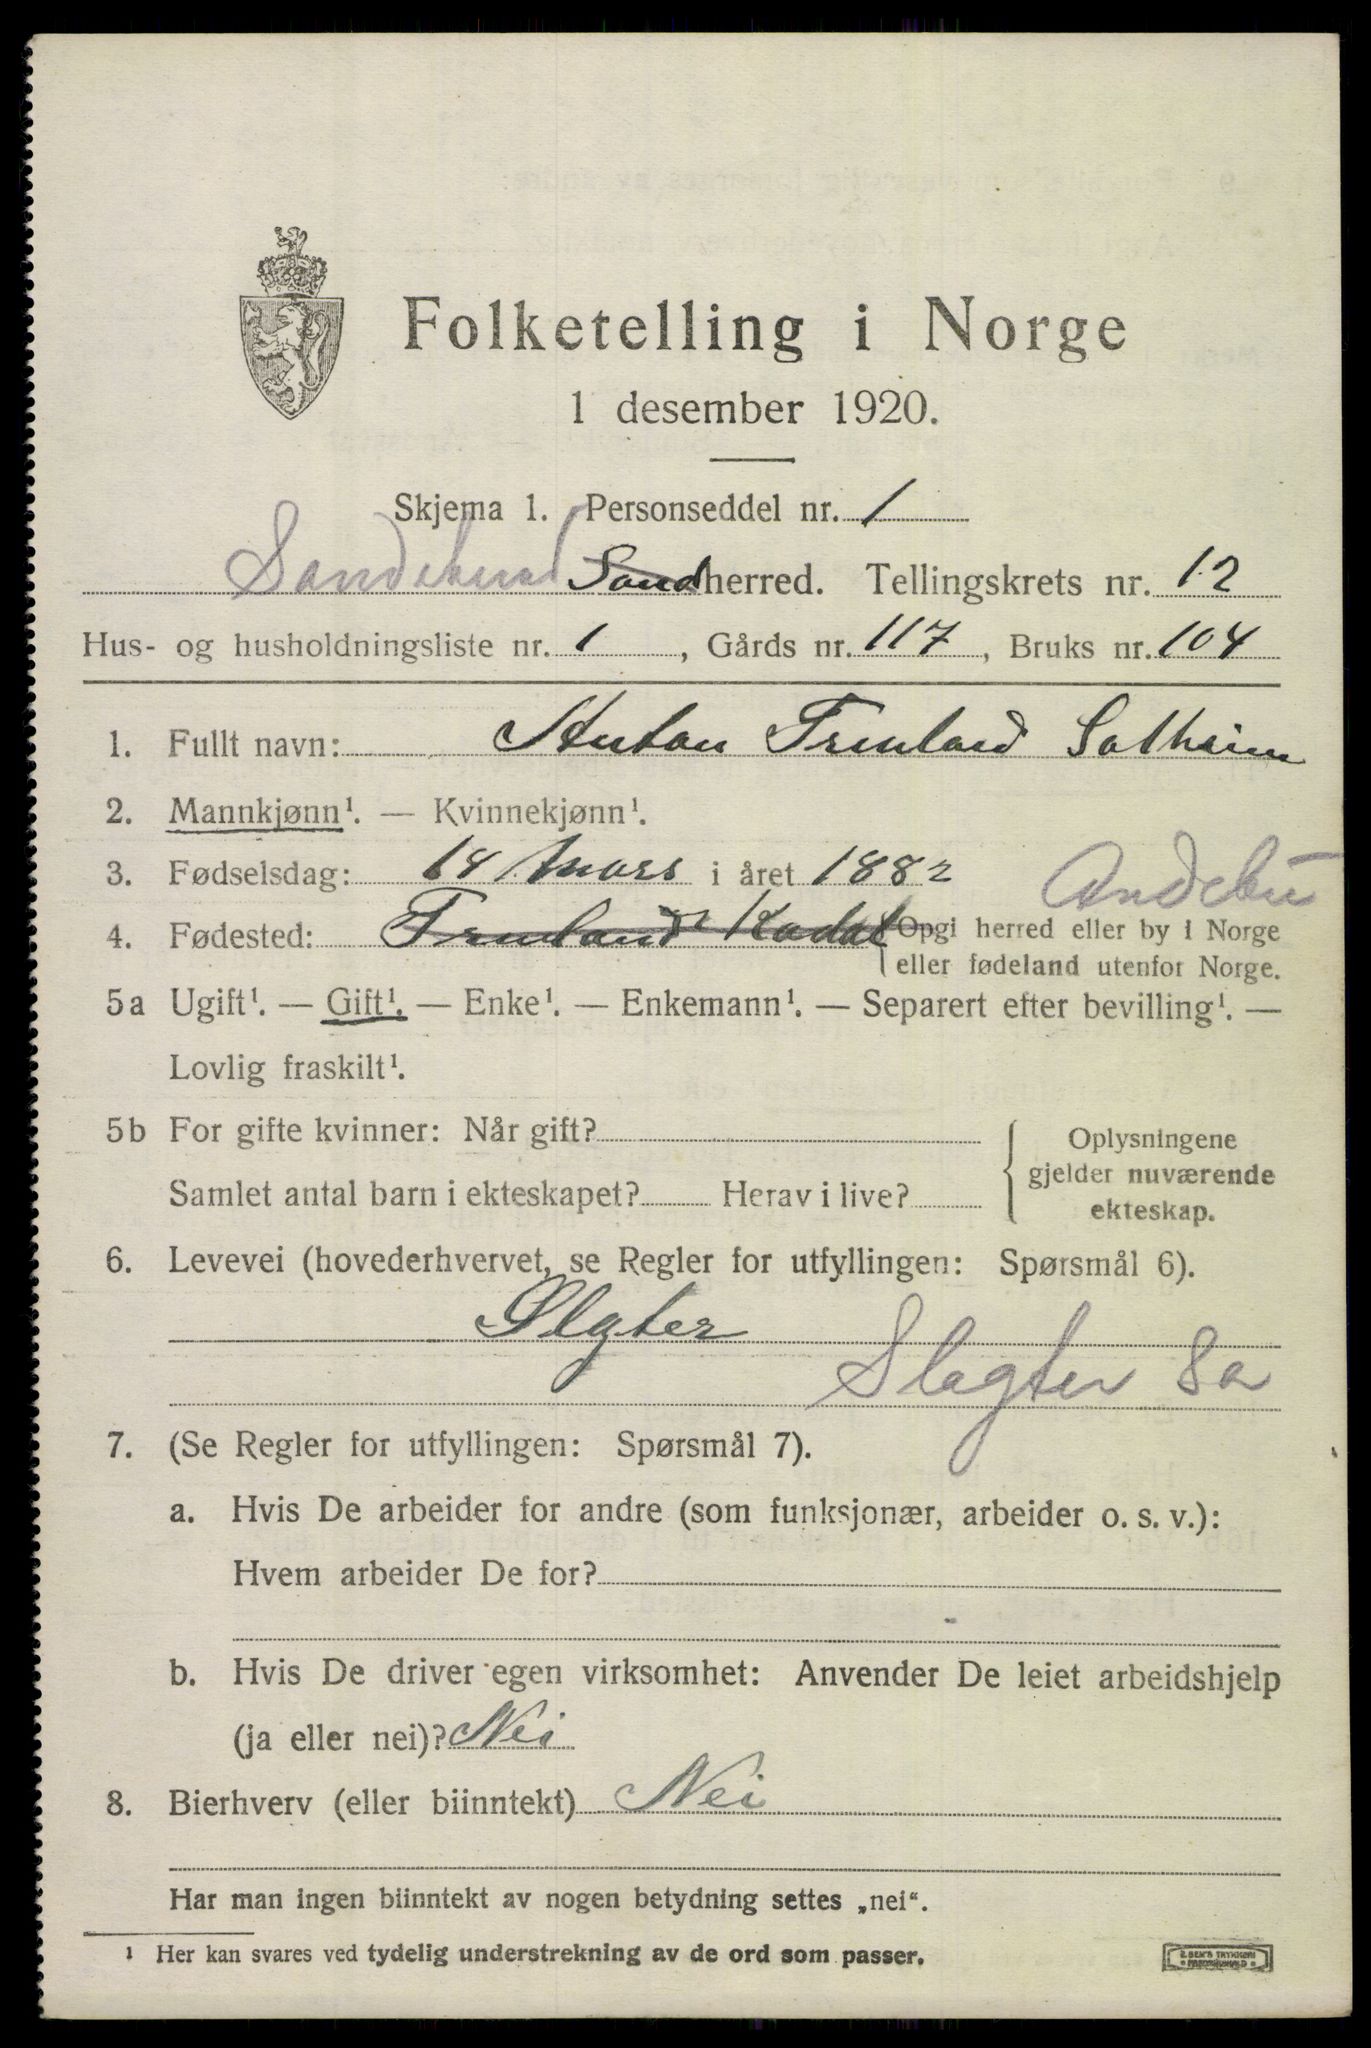 Folketelling i Norge
1 desember 1920.
Skjema 1. Personseddel nr. 1
Sandeherred Sandherred. Tellingskrets nr. 12
Hus- og husholdningsliste nr. 1, Gårds nr. 117, Bruks nr. 104
1. Fullt navn: Anton Trevland Solheim
2. Mannkjønn¹. — Kvinnekjønn¹.
3. Fødselsdag: 14 Mars i året 1882 Andebu
4. Fødested: Trevland Kodal {Opgi herred eller by i Norge
eller fødeland utenfor Norge.
5a Ugift¹. — Gift¹. — Enke¹. — Enkemann¹. — Separert efter bevilling¹. —
Lovlig fraskilt¹.
5b For gifte kvinner: Når gift?
Samlet antal barn i ekteskapet? Herav i live?
{ Oplysningene
gjelder nuværende
ekteskap.
6. Levevei (hovederhvervet, se Regler for utfyllingen: Spørsmål 6).
Slgter
Slagter Sa
7. (Se Regler for utfyllingen: Spørsmål 7).
a. Hvis De arbeider for andre (som funksjonær, arbeider o. s. v.):
Hvem arbeider De for?
b. Hvis De driver egen virksomhet: Anvender De leiet arbeidshjelp
(ja eller nei)? Nei
8. Bierhverv (eller biinntekt) Nei
Har man ingen biinntekt av nogen betydning settes „nei“.
¹ Her kan svares ved tydelig understrekning av de ord som passer.